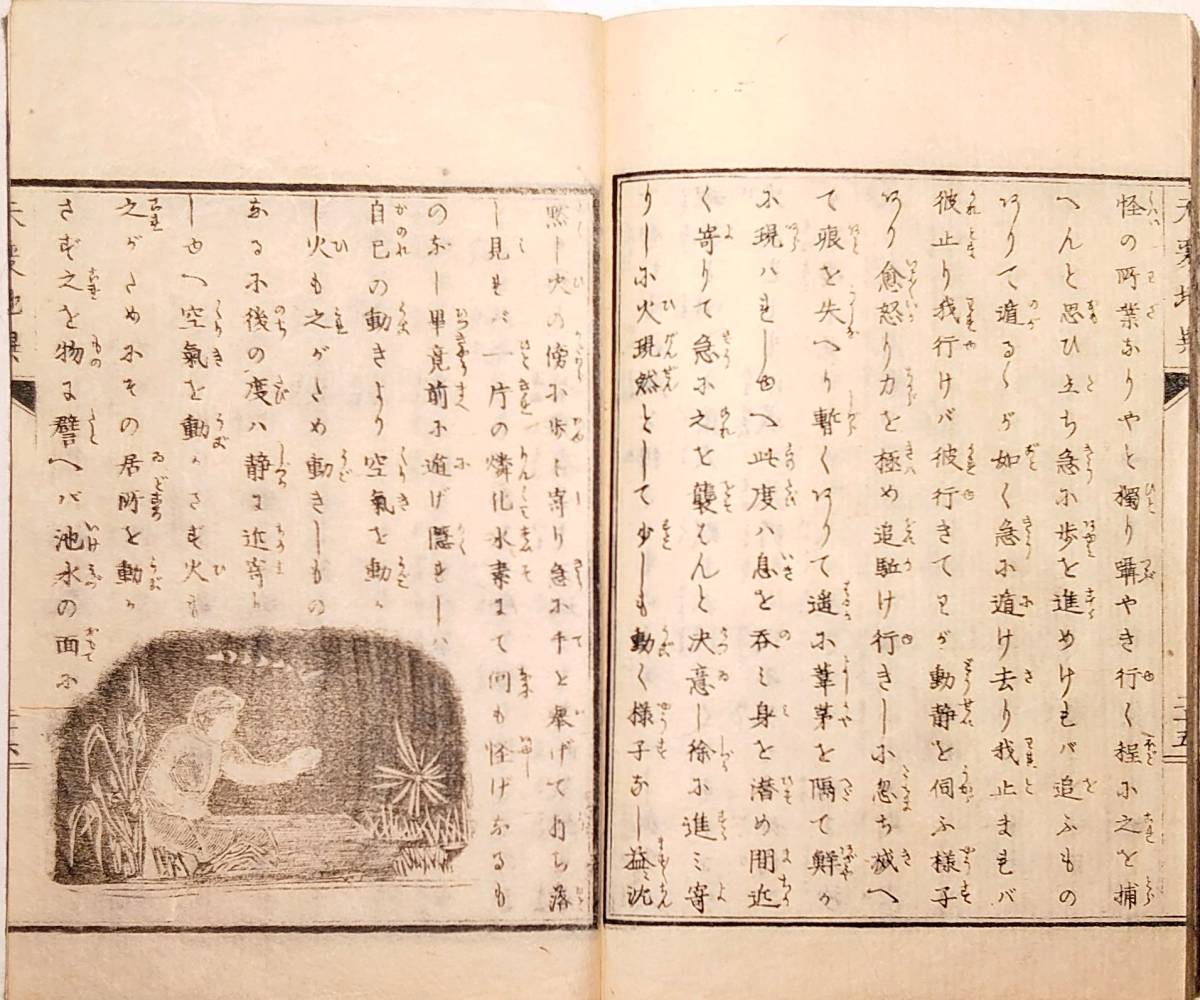 天変地異
二十五
怪の所業なりやと獨り囁やき行く程ふ之を捕
へんと思ひ立ち急ふ歩を進めけれバ追ふもの
ありて遁るゝが如く急ふ遁け去り我止まれバ
彼止り我行けバ彼行きてわが動静を伺ふ様子
あり愈怒り力を極め追駈け行きしふ忽ち滅へ
て痕を失へり暫くありて遙ふ葦茅を隔て鮮か
ふ現ハれしゆへ此度ハ息を呑ミ身を潜め間近
く寄りて急ふ之を襲はんと決意し徐ふ進ミ寄
りしふ火現然として少しも動く様子なし益〻沈
黙し火の傍ふ歩ミ寄り急ふ手と擧げて打ち落
し見れバ一片の燐化水素にて何も怪けなるも
のなし畢竟前ふ遁げ隠れしハ
自己の動きより空氣を動か
し火も之がため動きしもの
なるふ後の度ハ静に近寄り
しゆへ空氣を動かさず火も
之がためふその居所を動か
さず之を物に譬へバ池水の面ふ
天変地異